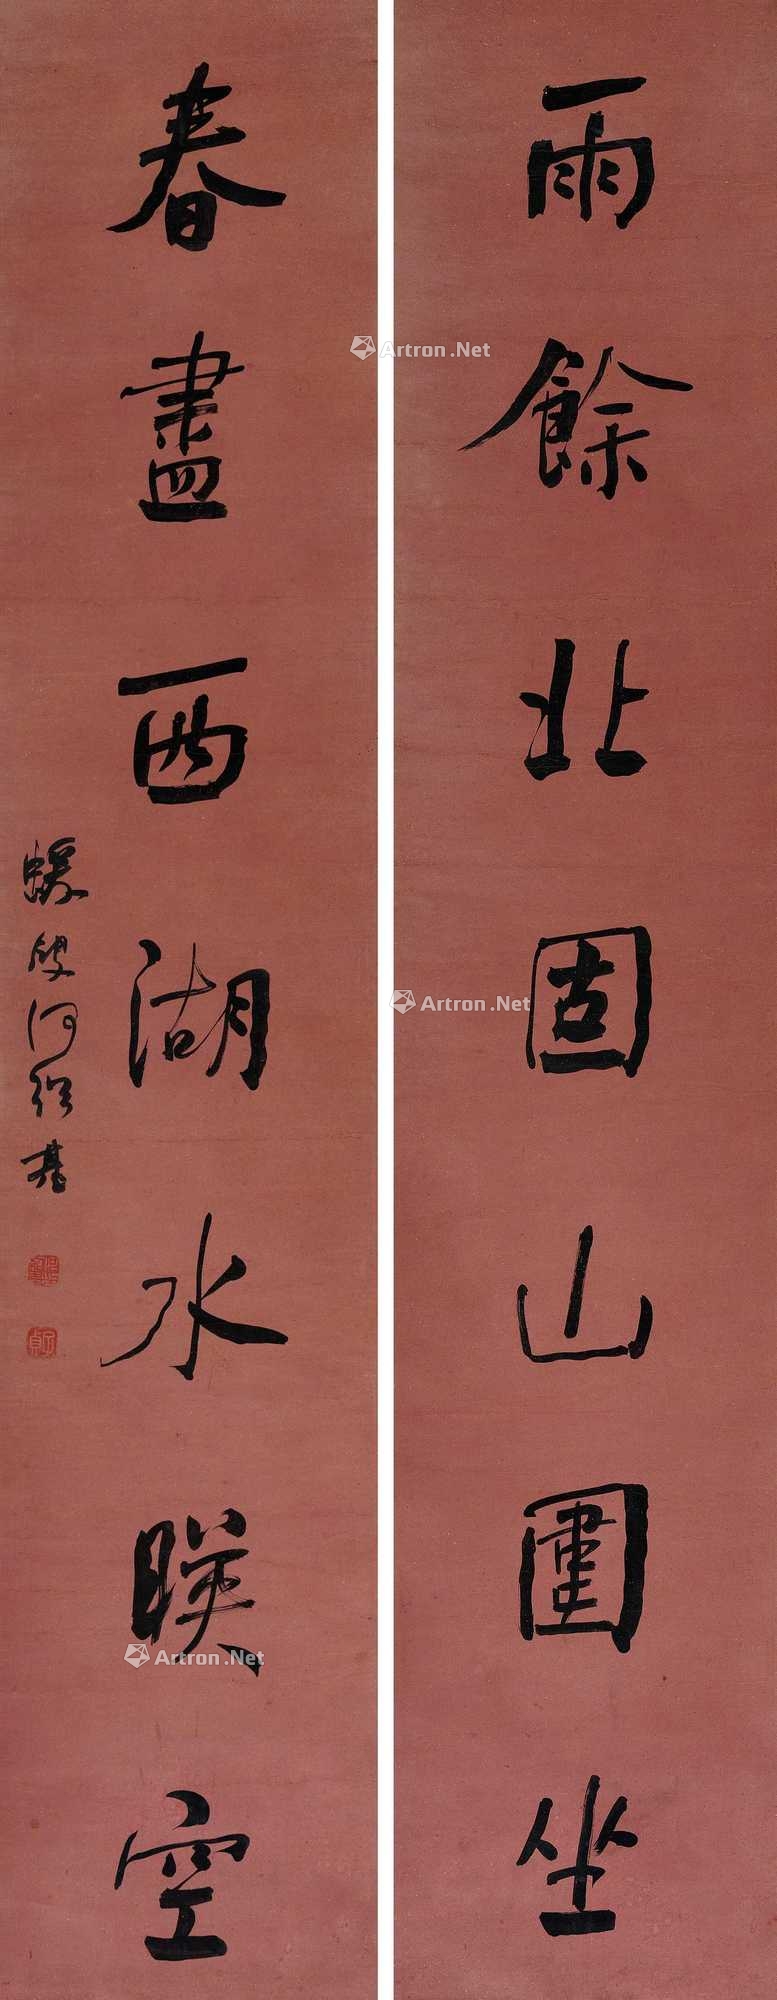 雨餘北固山圍坐
春盡西湖水映空
蝯叟何紹基
Artron.Net
Artron.Net
Artron.Net